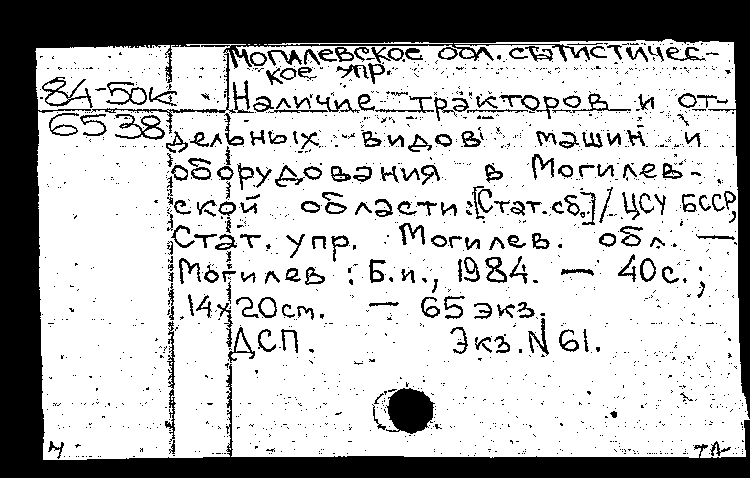 Могилевское обл. статистичес-
кое упр.
84-50к
Наличие тракторов и от-
6538
дельных видов машин и
оборудования в Могилев-
ской области: [Стат. сб.] / ЦСУ БССР,
Стат. упр. Могилев. обл. —
Могилев : Б.и., 1984. — 40с. ;
14х20см. — 65 экз.
ДСП. Экз. N 61.